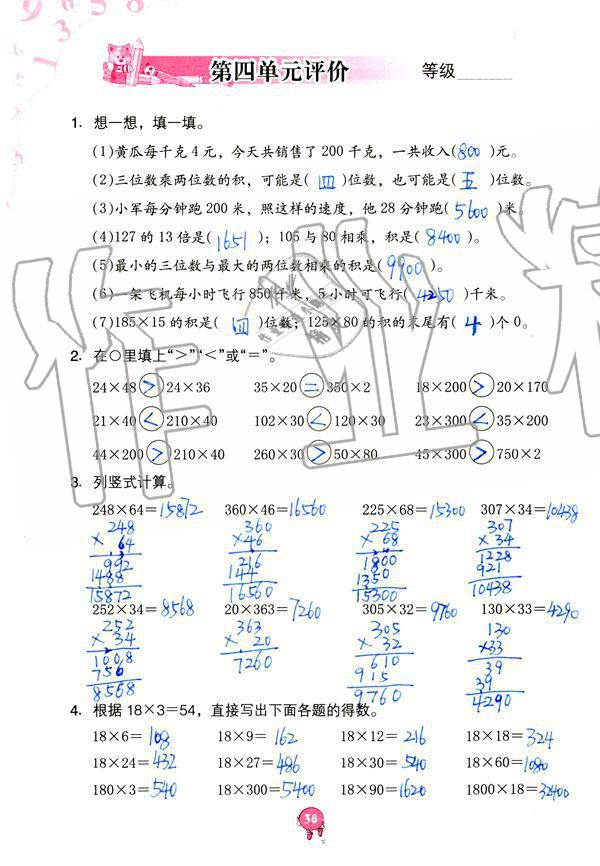 第四单元评价 等级
1. 想一想，填一填。
(1)黄瓜每千克4元，今天共销售了200千克，一共收入(800)元。
(2)三位数乘两位数的积，可能是(四)位数，也可能是(五)位数。
(3)小军每分钟跑200米，照这样的速度，他28分钟跑(5600)米。
(4)127的13倍是(1651)；105与80相乘，积是(8400)。
(5)最小的三位数与最大的两位数相乘的积是(9900)。
(6)一架飞机每小时飞行850千米，5小时可飞行(4250)千米。
(7)185×15的积是(四)位数；125×80的积的末尾有(4)个0。
2. 在○里填上“>”“<”或“=”。
24×48>24×36 35×20=350×2 18×200>20×170
21×40<210×40 102×30<120×30 23×300<35×200
44×200>210×40 260×30>50×80 45×300>750×2
3. 列竖式计算。
248×64=15872 360×46=16560 225×68=15300 307×34=10438
248 360 225 307
×64 ×46 ×68 ×34
992 216 1800 1228
1488 144 1350 921
15872 16560 15300 10438
252×34=8568 20×363=7260 305×32=9760 130×33=4290
252 363 305 130
×34 ×20 ×32 ×33
1008 7260 610 39
756 915 39
8568 9760 4290
4. 根据18×3=54，直接写出下面各题的得数。
18×6=108 18×9=162 18×12=216 18×18=324
18×24=432 18×27=486 18×30=540 18×60=1080
180×3=540 18×300=5400 18×90=1620 1800×18=32400
38